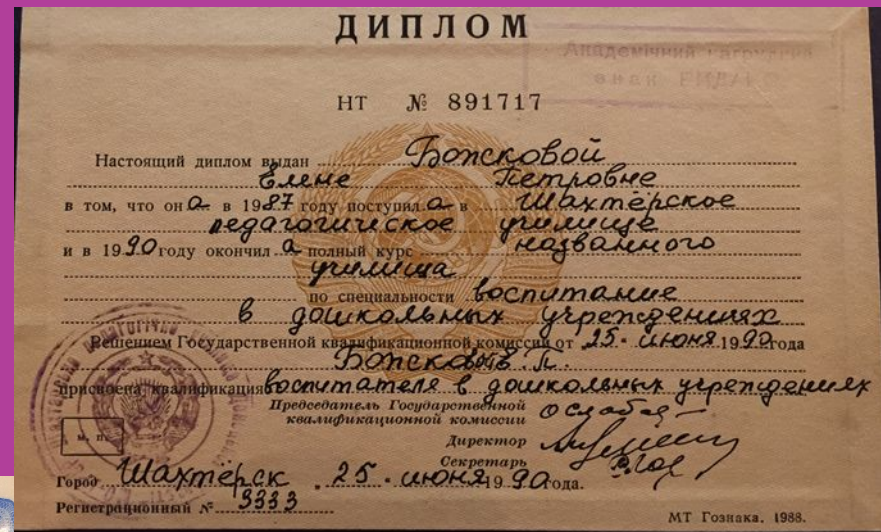 ДИПЛОМ
НТ № 891717
Настоящий диплом выдан Божсковой
Елене Петровне
в том, что она в 1987 году поступила в Шахтёрское
педагогическое училище
и в 1990 году окончила полный курс названного
училища
по специальности воспитание
в дошкольных учреждениях
Решением Государственной квалификационной комиссии от 25. июня 1990 года
Е. П.
присвоена квалификация воспитателя в дошкольных учреждениях
Председатель Государственной
квалификационной комиссии
Директор
Секретарь
Город Шахтёрск 25. июня 1990 года.
м. п.
Регистрационный № 3333
МТ Гознака. 1988.